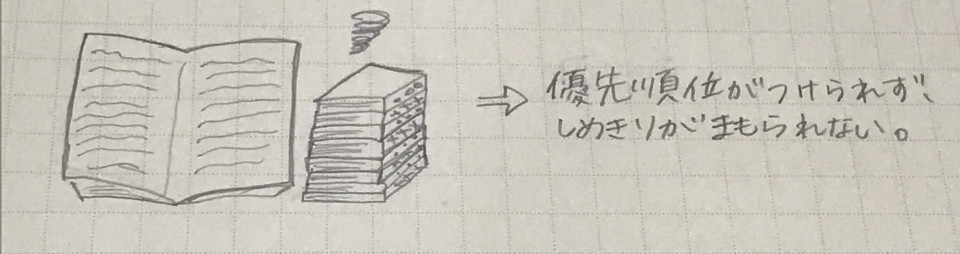 ⇒ 優先順位がつけられず、
しめきりがまもられない。